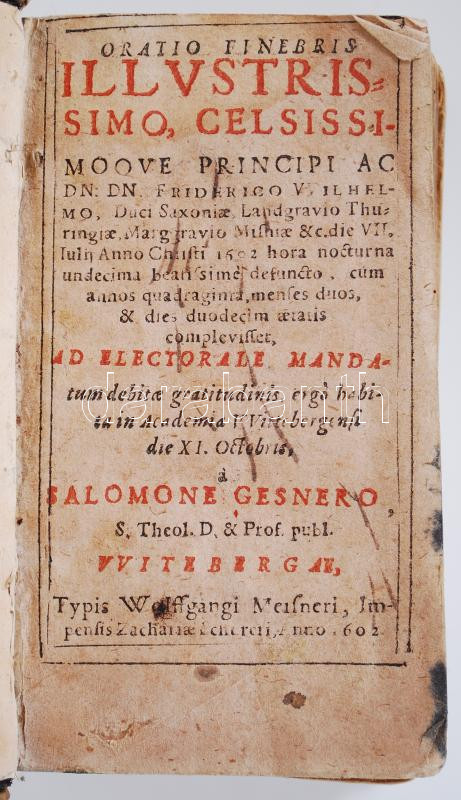 ORATIO FINEBRIS
ILLVSTRIS-
SIMO, CELSISSI-
MOQVE PRINCIPI AC
DN. DN. FRIDERICO VVILHEL-
MO, Duci Saxoniæ, Landgravio Thu-
ringiæ, Marggravio Misniæ &c. die VII.
Iulii Anno Christi 1602 hora nocturna
undecima beatissime defuncto, cum
annos quadraginta, menses duos,
& dies duodecim ætatis
complevisset,
AD ELECTORALE MANDA-
tum debitæ gratitudinis ergò habi-
ta in Academia VVittebergensi
die XI. Octobris,
à
SALOMONE GESNERO,
S. Theol. D. & Prof. publ.
VVITEBERGAE,
Typis Wolffgangi Meisneri, Im-
pensis Zachariæ Schureri, Anno 1602
darabanth